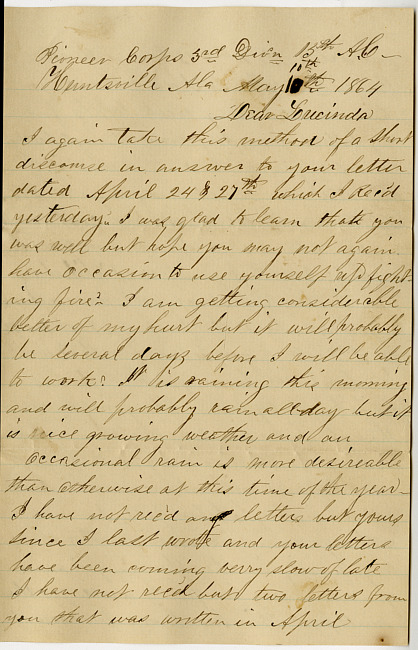 Pioneer Corps 3rd Divn 15th A.C-
10th
Huntsville Ala May 10th 1864
Dear Lucinda
I again take this method of a short
discourse in answer to your letter
dated April 24 & 27th which I Rec'd
yesterday. I was glad to learn that you
was well but hope you may not again
have occasion to use yourself up fight-
ing fire. I am getting considerable
better of my hurt but it will probably
be several days before I will be able
to work. It is raining this morning
and will probably rain all day but it
is nice growing weather and an
occasional rain is more desireable
than otherwise at this time of the year-
I have not rec'd any letters but yours
since I last wrote and your letters
have been coming verry slow of late
I have not rec'd but two letters from
you that was written in April